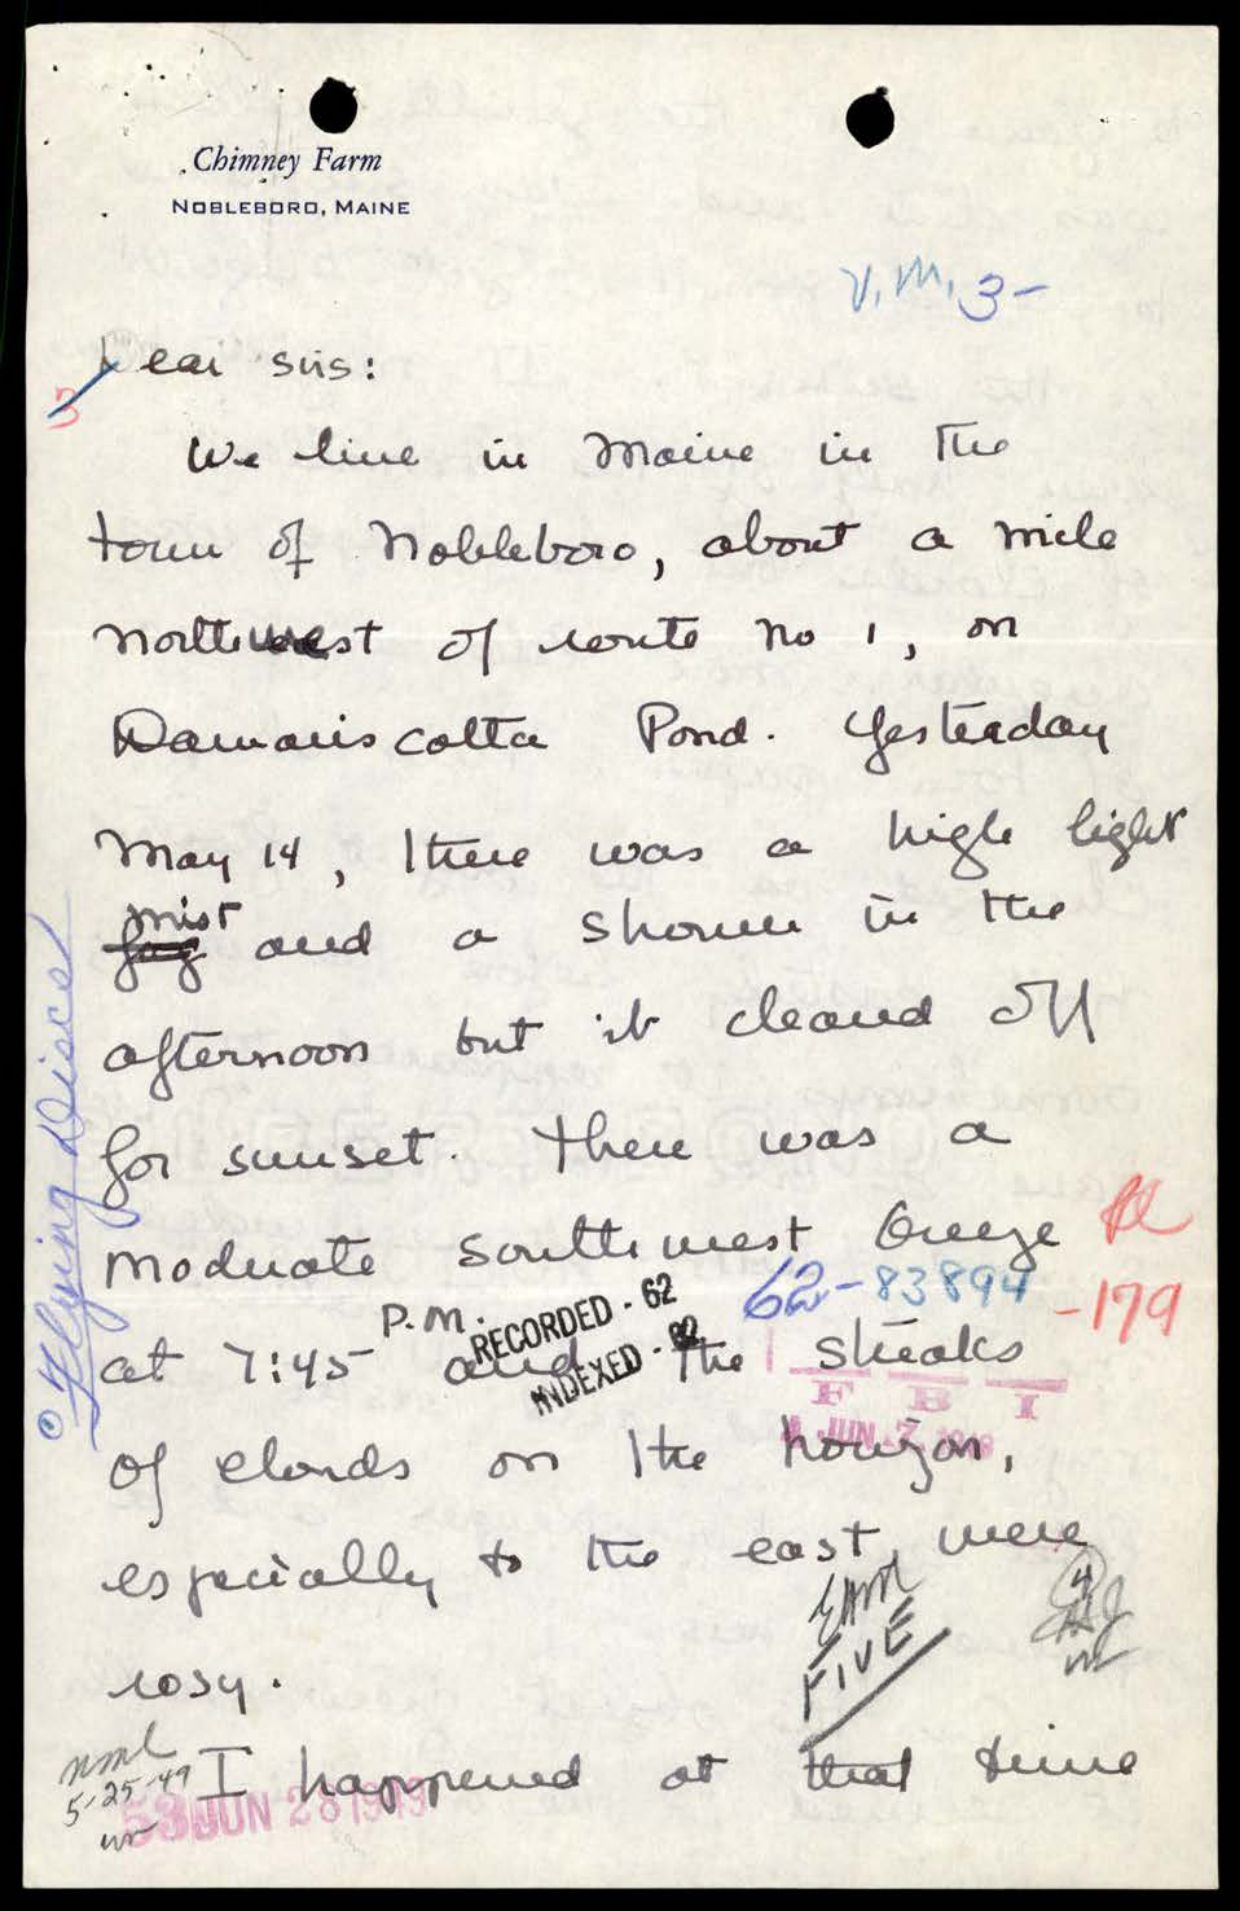 Chimney Farm
NOBLEBORO, MAINE
V.M. 3-
Dear Sirs:
3
We live in Maine in the
town of Nobleboro, about a mile
northwest of route no 1, on
Damariscotta Pond. Yesterday
May 14, there was a high light
mist
fog and a shower in the
afternoon but it cleared off
for sunset. There was a
moderate southwest breeze
62-83894-179
P.M.
RECORDED - 62
at 7:45 and the streaks
INDEXED - 62
F B I
JUN 7
of clouds on the horizon,
especially to the east, were
FIVE
4
rosy.
I happened at that time
nml
5-25-49
58 JUN 28 1949
Flying Discs